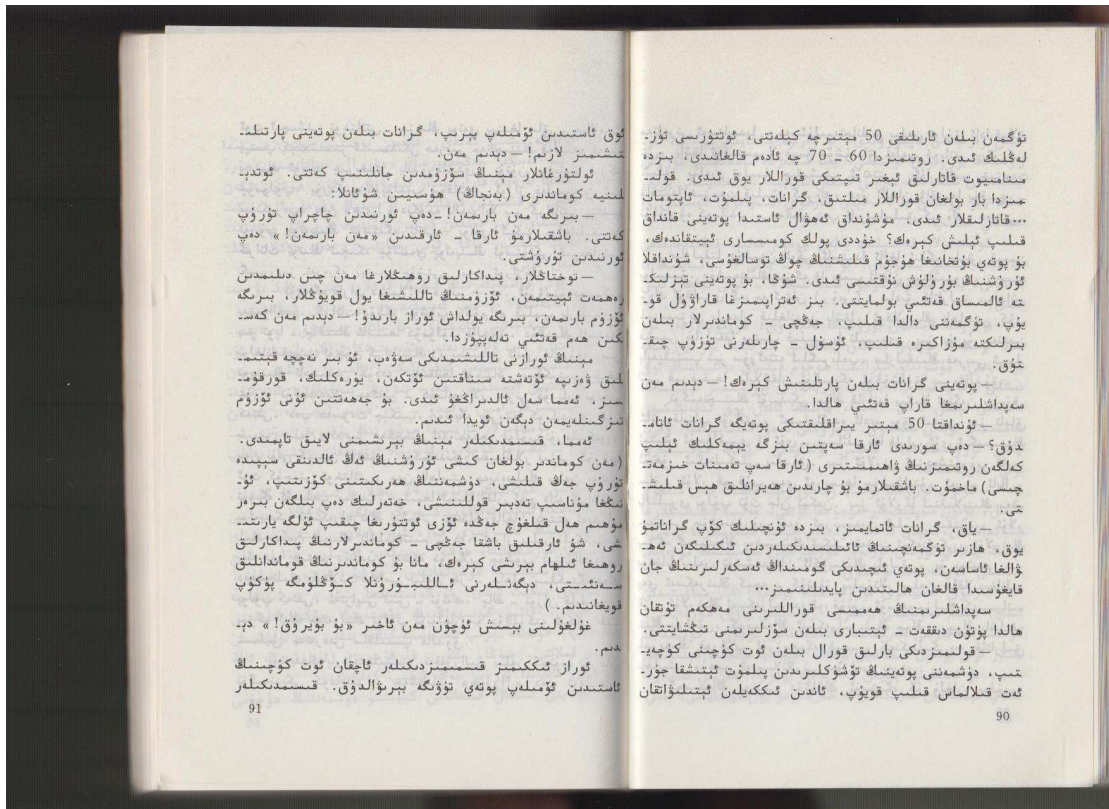 تۈگمەن بىلەن ئارىلىقى 50 مېتىرچە كېلەتتى، ئوتتۇرىسى تۈز-
لەڭلىك ئىدى. روتىمىزدا 60 ـ 70 چە ئادەم قالغانىدى، بىزدە
مىنامىيوت قاتارلىق ئېغىر تىپتىكى قوراللار يوق ئىدى. قولى-
مىزدا بار بولغان قوراللار مىلتىق، گرانات، پىلمۇت، ئاپتومات
…قاتارلىقلار ئىدى. مۇشۇنداق ئەھۋال ئاستىدا پوتەينى قانداق
قىلىپ ئېلىش كېرەك؟ خۇددى پولك كومىسسارى ئېيتقاندەك،
بۇ پوتەي بۇتخانىغا ھۇجۇم قىلىشنىڭ چوڭ توسالغۇسى، شۇنداقلا
ئۇرۇشنىڭ بۇرۇلۇش نۇقتىسى ئىدى. شۇڭا، بۇ پوتەينى تېزلىك-
تە ئالمىساق قەتئىي بولمايتتى. بىز ئەتراپىمىزغا قاراۋۇل قو-
يۇپ، تۈگمەننى دالدا قىلىپ، جەڭچى ـ كوماندىرلار بىلەن
بىرلىكتە مۇزاكىرە قىلىپ، ئۇسۇل ـ چارىلەرنى تۈزۈپ چىق-
تۇق.
— پوتەينى گرانات بىلەن پارتلىتىش كېرەك! — دېدىم مەن
سەپداشلىرىمغا قاراپ قەتئىي ھالدا.
— ئۇنداقتا 50 مېتىر يىراقلىقتىكى پوتەيگە گرانات ئاتام-
دۇق؟ — دەپ سورىدى ئارقا سەپتىن بىزگە يېمەكلىك ئېلىپ
كەلگەن روتىمىزنىڭ ۋاھىمىستىرى (ئارقا سەپ تەمىنات خىزمەت-
چىسى) ماخمۇت. باشقىلارمۇ بۇ چارىدىن ھەيرانلىق ھېس قىلىش-
تى.
— ياق، گرانات ئاتمايمىز، بىزدە ئۇنچىلىك كۆپ گراناتمۇ
يوق، ھازىر تۈگمەنچىنىڭ ئائىلىسىدىكىلەردىن ئىگىلىگەن ئەھ-
ۋالغا ئاساسەن، پوتەي ئىچىدىكى گومىنداڭ ئەسكەرلىرىنىڭ جان
قايغۇسىدا قالغان ھالىتىدىن پايدىلىنىمىز…
سەپداشلىرىمنىڭ ھەممىسى قوراللىرىنى مەھكەم تۇتقان
ھالدا پۈتۈن دىققەت ـ ئېتىبارى بىلەن سۆزلىرىمنى تىڭشايتتى.
— قولىمىزدىكى بارلىق قورال بىلەن ئوت كۈچىنى كۈچەي-
تىپ، دۈشمەننى پوتەينىڭ تۆشۈكلىرىدىن پىلمۇت ئېتىشقا جۈر-
ئەت قىلالماس قىلىپ قويۇپ، ئاندىن ئىككەيلەن ئېتىلىۋاتقان
90
ئوق ئاستىدىن ئۆمىلەپ بېرىپ، گرانات بىلەن پوتەينى پارتىلى-
تىشىمىز لازىم! — دېدىم مەن.
ئولتۇرغانلار مېنىڭ سۆزۈمدىن جانلىنىپ كەتتى. ئوتدې-
لىنىيە كوماندىرى (بەنجاڭ) ھۈسىيىن شۇئانلا:
— بىرىگە مەن بارىمەن! — دەپ ئورنىدىن چاچراپ تۇرۇپ
كەتتى. باشقىلارمۇ ئارقا ـ ئارقىدىن «مەن بارىمەن!» دەپ
ئورنىدىن تۇرۇشتى.
— توختاڭلار، پىداكارلىق روھىڭلارغا مەن چىن دىلىمدىن
رەھمەت ئېيتىمەن، ئۆزۈمنىڭ تاللىشىغا يول قويۇڭلار، بىرىگە
ئۆزۈم بارىمەن، بىرىگە يولداش ئوراز بارىدۇ! — دېدىم مەن كەس-
كىن ھەم قەتئىي تەلەپپۇزدا.
مېنىڭ ئورازنى تاللىشىمدىكى سەۋەب، ئۇ بىر نەچچە قېتىم-
لىق ۋەزىپە ئۆتەشتە سىناقتىن ئۆتكەن، يۈرەكلىك، قورقۇم-
سىز، ئەمما سەل ئالدىراڭغۇ ئىدى. بۇ جەھەتتىن ئۇنى ئۆزۈم
تىزگىنلەيمەن دېگەن ئويدا ئىدىم.
ئەمما، قىسىمدىكىلەر مېنىڭ بېرىشىمنى لايىق تاپمىدى.
(مەن كوماندىر بولغان كىشى ئۇرۇشنىڭ ئەڭ ئالدىنقى سېپىدە
تۇرۇپ جەڭ قىلىشى، دۈشمەننىڭ ھەرىكىتىنى كۆزىتىپ، ئۇ-
نىڭغا مۇناسىپ تەدبىر قوللىنىشى، خەتەرلىك دەپ بىلگەن بىرەر
مۇھىم ھەل قىلغۇچ جەڭدە ئۆزى ئوتتۇرىغا چىقىپ ئۈلگە يارىتى-
شى، شۇ ئارقىلىق باشقا جەڭچى ـ كوماندىرلارنىڭ پىداكارلىق
روھىغا ئىلھام بېرىشى كېرەك، مانا بۇ كوماندىرنىڭ قوماندانلىق
سەنئىتى، دېگەنلەرنى ئاللىبۇرۇنلا كۆڭلۈمگە پۈكۈپ
قويغانىدىم. )
غۇلغۇلىنى بېسىش ئۈچۈن مەن ئاخىر «بۇ بۇيرۇق!» دې-
دىم.
ئوراز ئىككىمىز قىسىمىمىزدىكىلەر ئاچقان ئوت كۈچىنىڭ
ئاستىدىن ئۆمىلەپ پوتەي تۈۋىگە بېرىۋالدۇق. قىسىمدىكىلەر
91